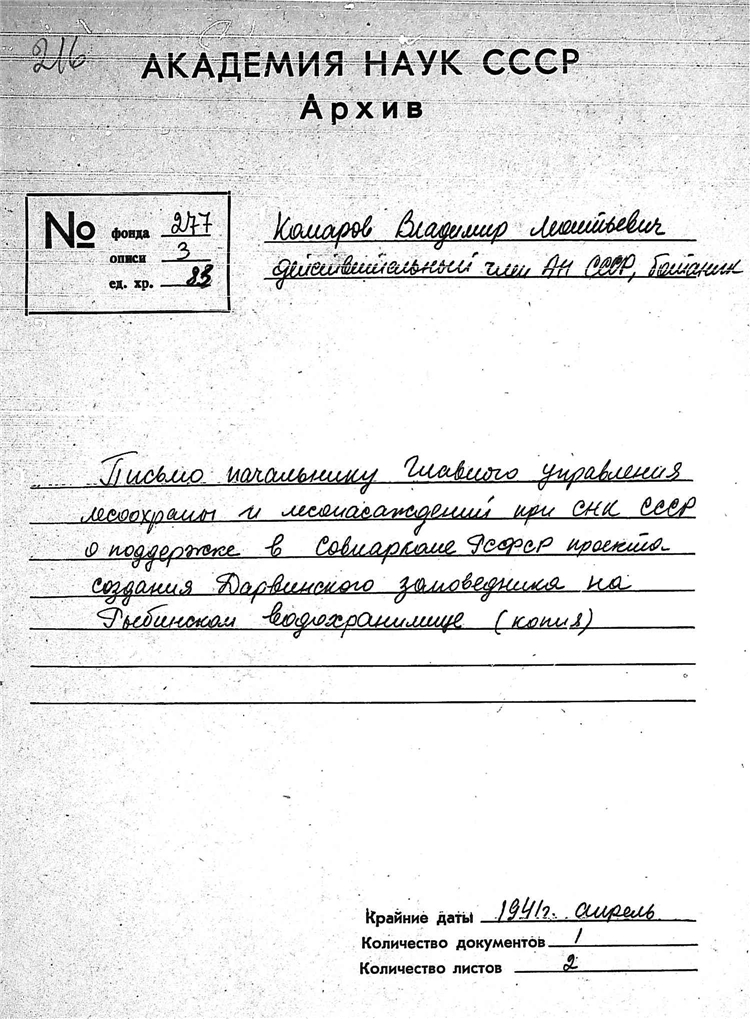 216
АКАДЕМИЯ НАУК СССР
Архив
№ фонда 277
описи 3
ед. хр. 83
Комаров Владимир Леонтьевич
действительный член АН СССР, ботаник
Письмо начальнику Главного управления
лесоохраны и лесонасаждений при СНК СССР
о поддержке в Совнаркоме РСФСР проекта
создания Дарвинского заповедника на
Рыбинском водохранилище (копия)
Крайние даты 1941г. апрель
Количество документов 1
Количество листов 2